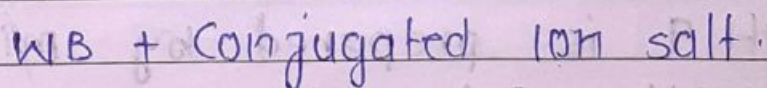 WB + Conjugated Ion salt.